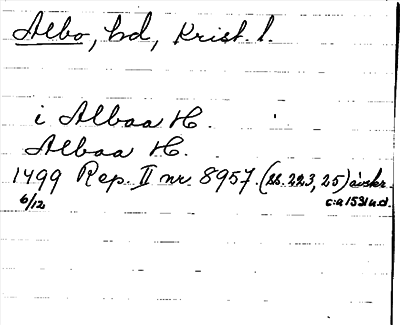 Albo, bd, Krist. l.
i Albaa H.
Albaa H.
1499 Rep. II nr. 8957. (ss. 223, 25) avskr.
6/12 c:a 1531 u.d.